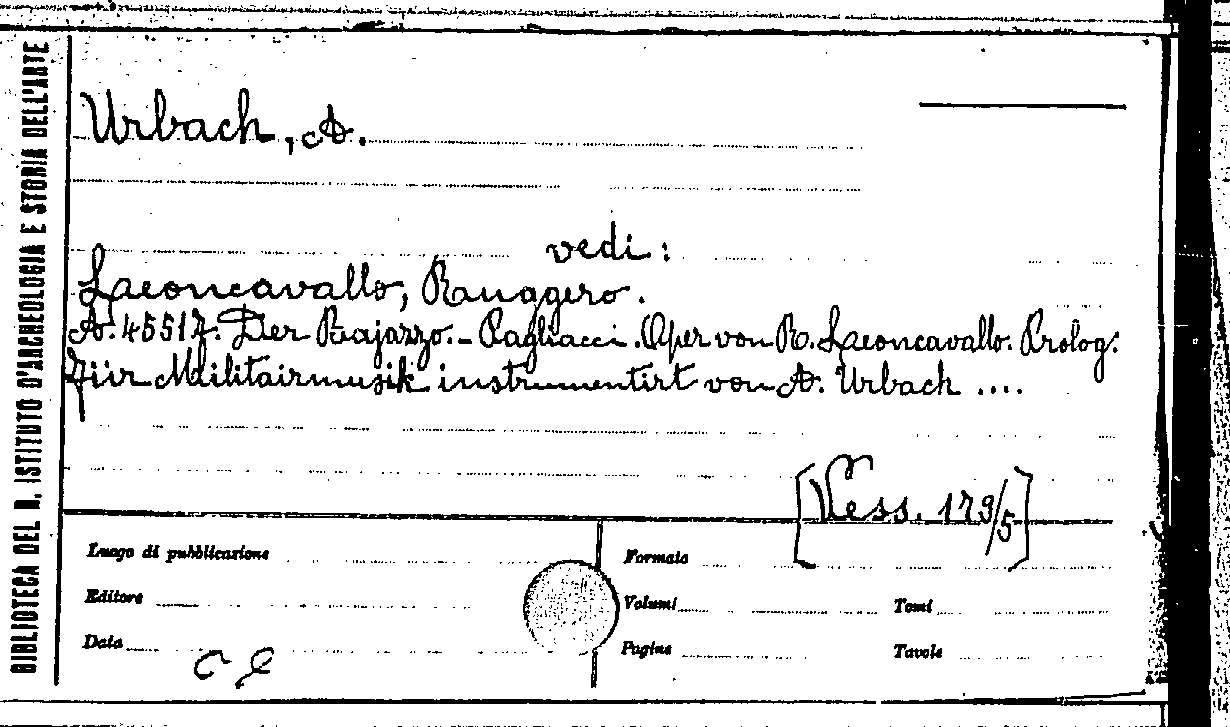 BIBLIOTECA DEL R. ISTITUTO D'ARCHEOLOGIA E STORIA DELL'ARTE
Urbach, A.
vedi:
Leoncavallo, Ruggero.
A. 45517. Der Bajazzo. - Pagliacci. Oper von R. Leoncavallo. Prolog.
Für Militairmusik instrumentirt von A. Urbach ....
[Vess. 179/5]
Luogo di pubblicazione
Formato
Editore
Volumi
Tomi
Data
Pagine
Tavole